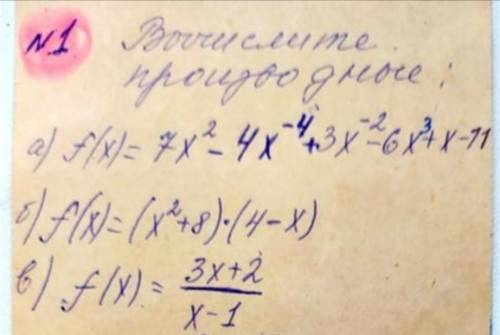 №1 Вычислите
производные:
а) f(x) = 7x² - 4x⁻⁴ + 3x⁻² - 6x³ + x - 11
б) f(x) = (x² + 8)·(4 - x)
в) f(x) = (3x + 2)/(x - 1)